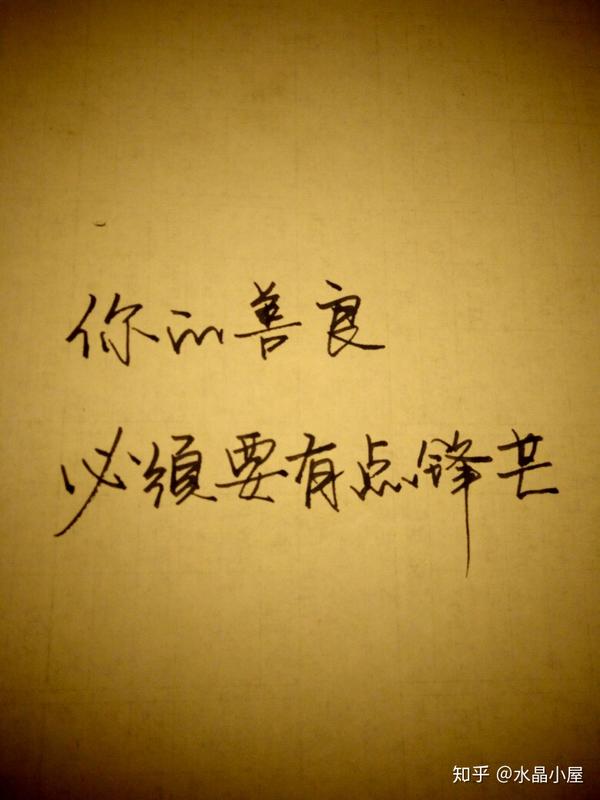 你的善良
必須要有点锋芒
知乎 @水晶小屋